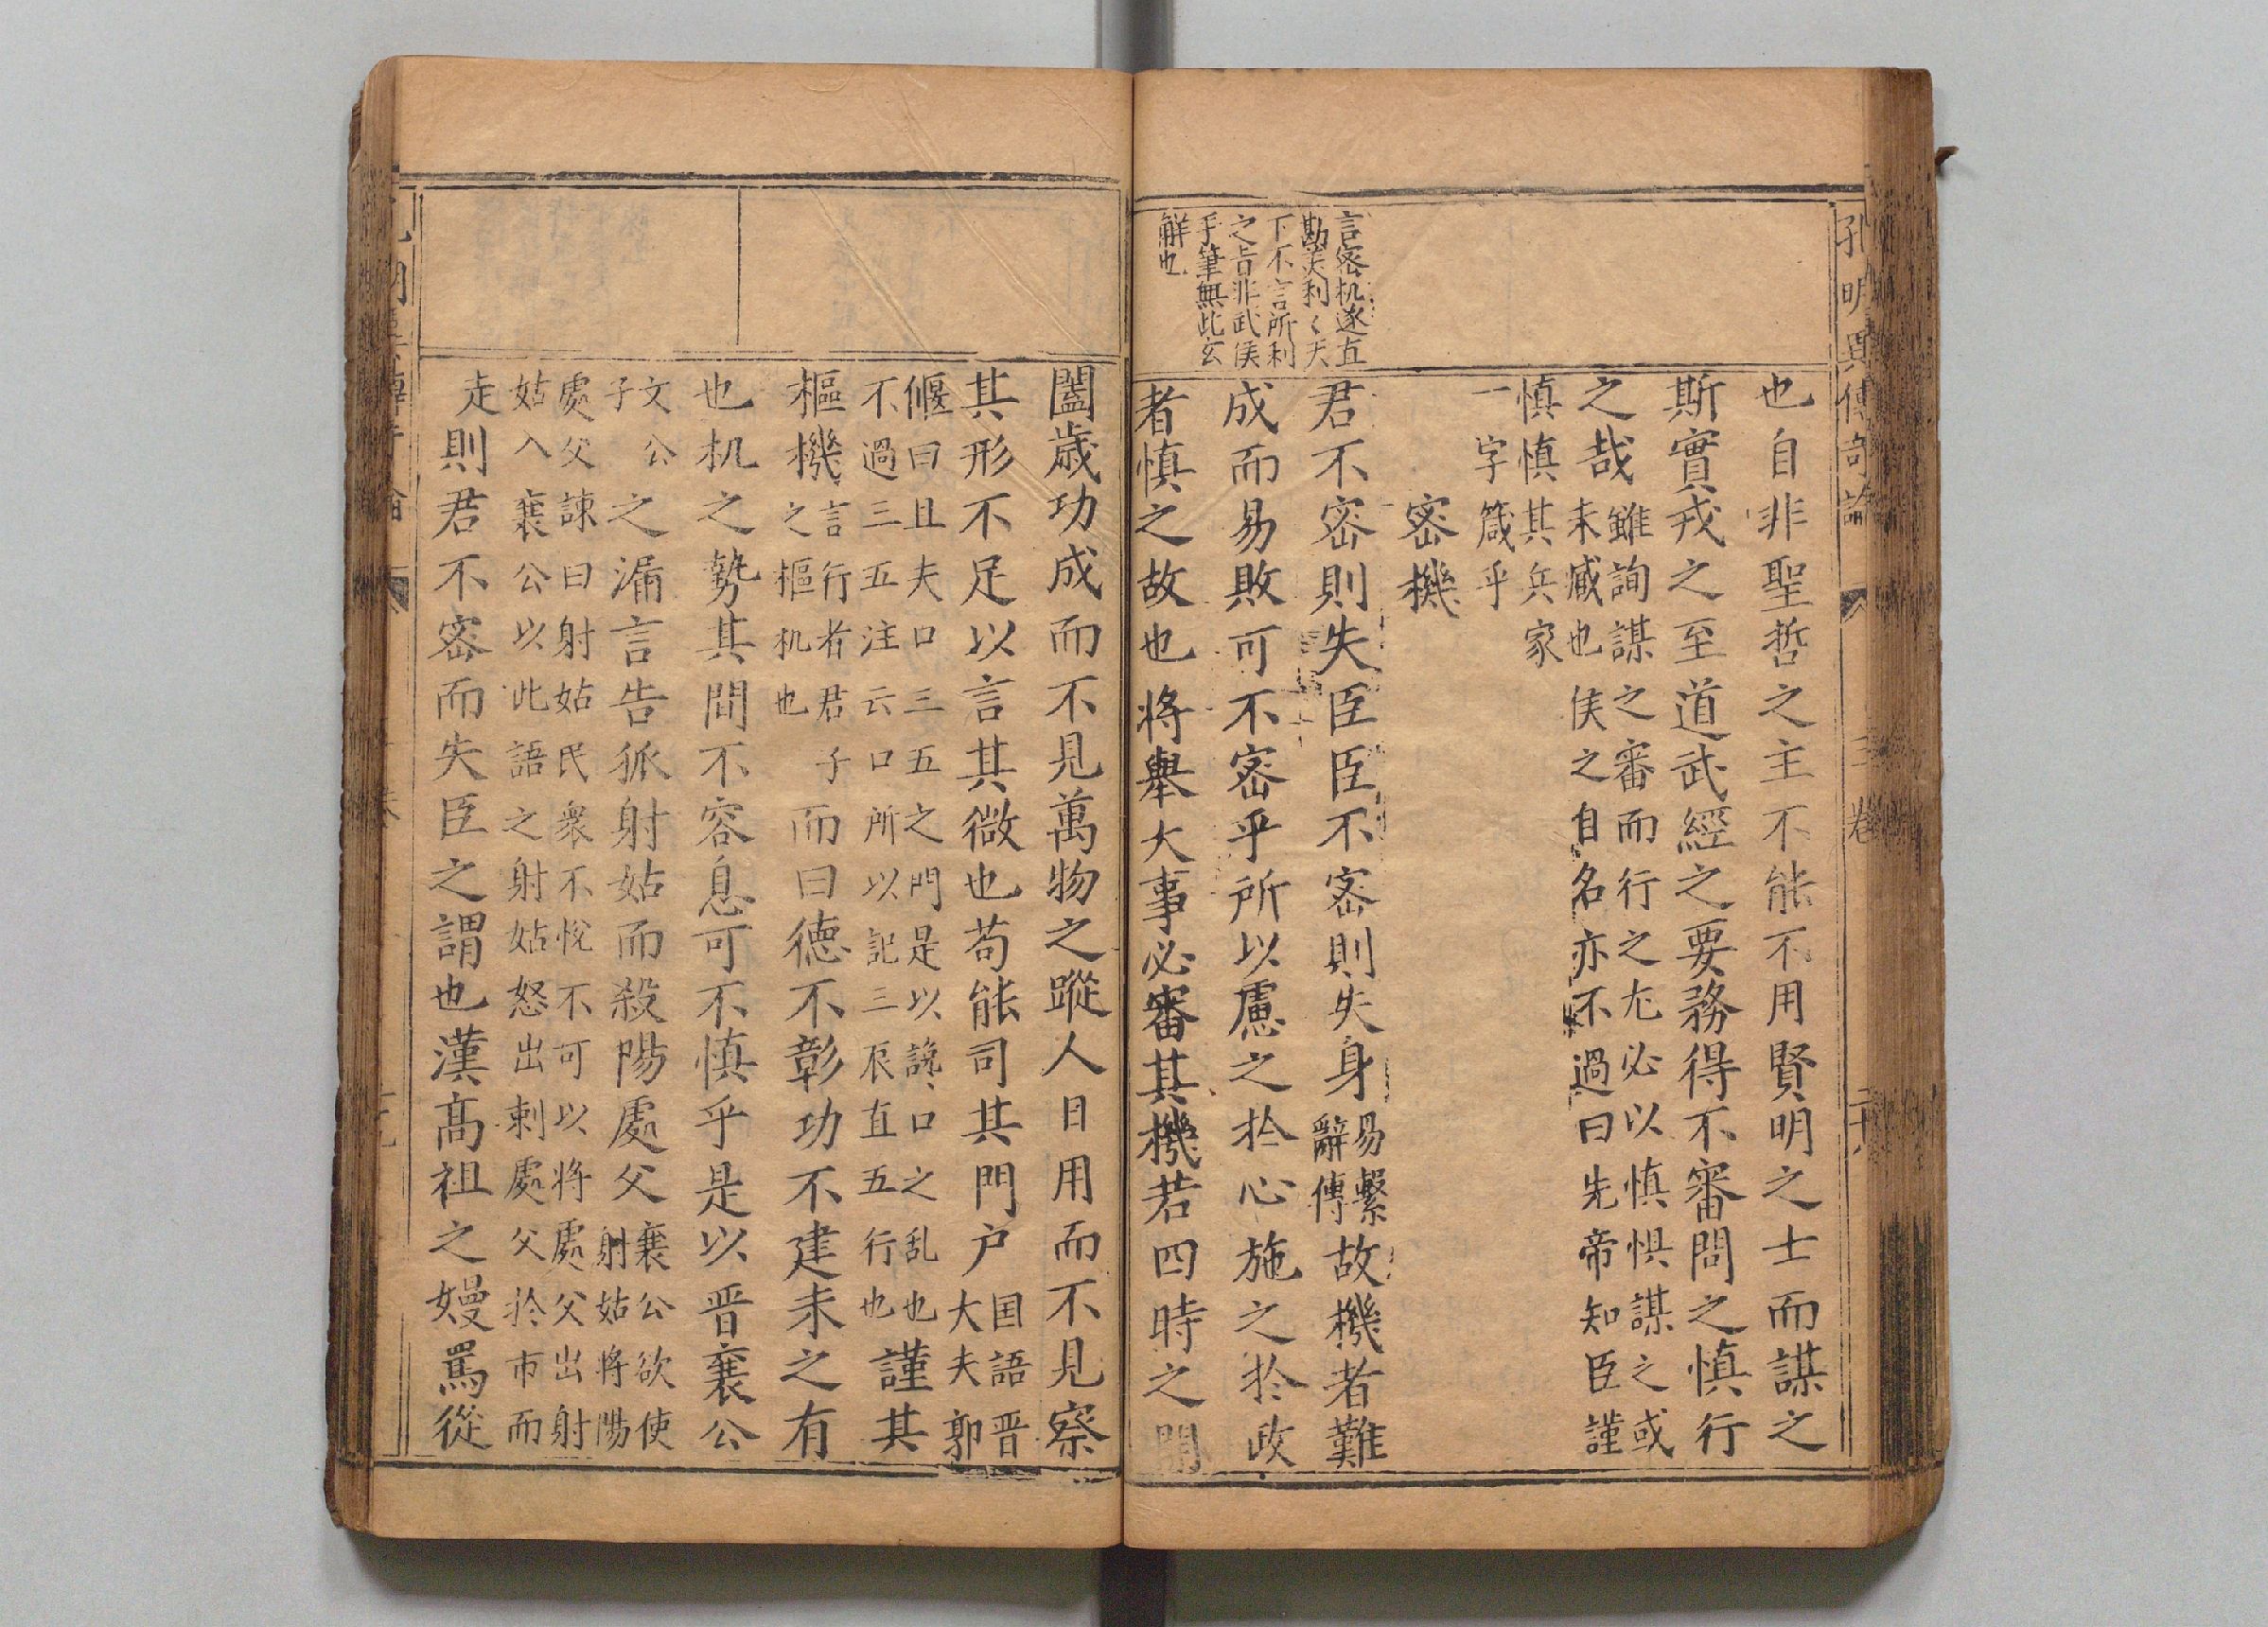 孔明異傳奇論
三卷
言密机遂直
勘美利〻天
下不言所利
之旨非武侯
手筆無此玄
解也
也自非聖哲之主不能不用賢明之士而謀之
斯實戎之至道武經之要務得不審問之慎行
之哉
雖詢謀之審而行之尤必以慎惧謀之或
未臧也侯之自名亦不過曰先帝知臣謹
慎慎其兵家
一字箴乎
密機
君不密則失臣臣不密則失身
易繫
辭傳
故機者難
成而易敗可不密乎所以慮之於心施之於政
者慎之故也将舉大事必審其機若四時之開
闔歳功成而不見萬物之蹤人目用而不見察
其形不足以言其微也苟能司其門户
国語晋
大夫郭
偃曰且夫口三五之門是以讒口之乱也
不過三五注云口所以記三辰直五行也
謹其
樞機
言行者君子
之樞机也
而曰德不彰功不建未之有
也机之勢其間不容息可不慎乎是以晋襄公
文公
子
之漏言告狐射姑而殺陽處父
襄公欲使
射姑将陽
處父諫曰射姑民衆不悦不可以将處父出射
姑入襄公以此語之射姑怒出刺處父於市而
走則君不密而失臣之謂也漢髙祖之嫚罵從